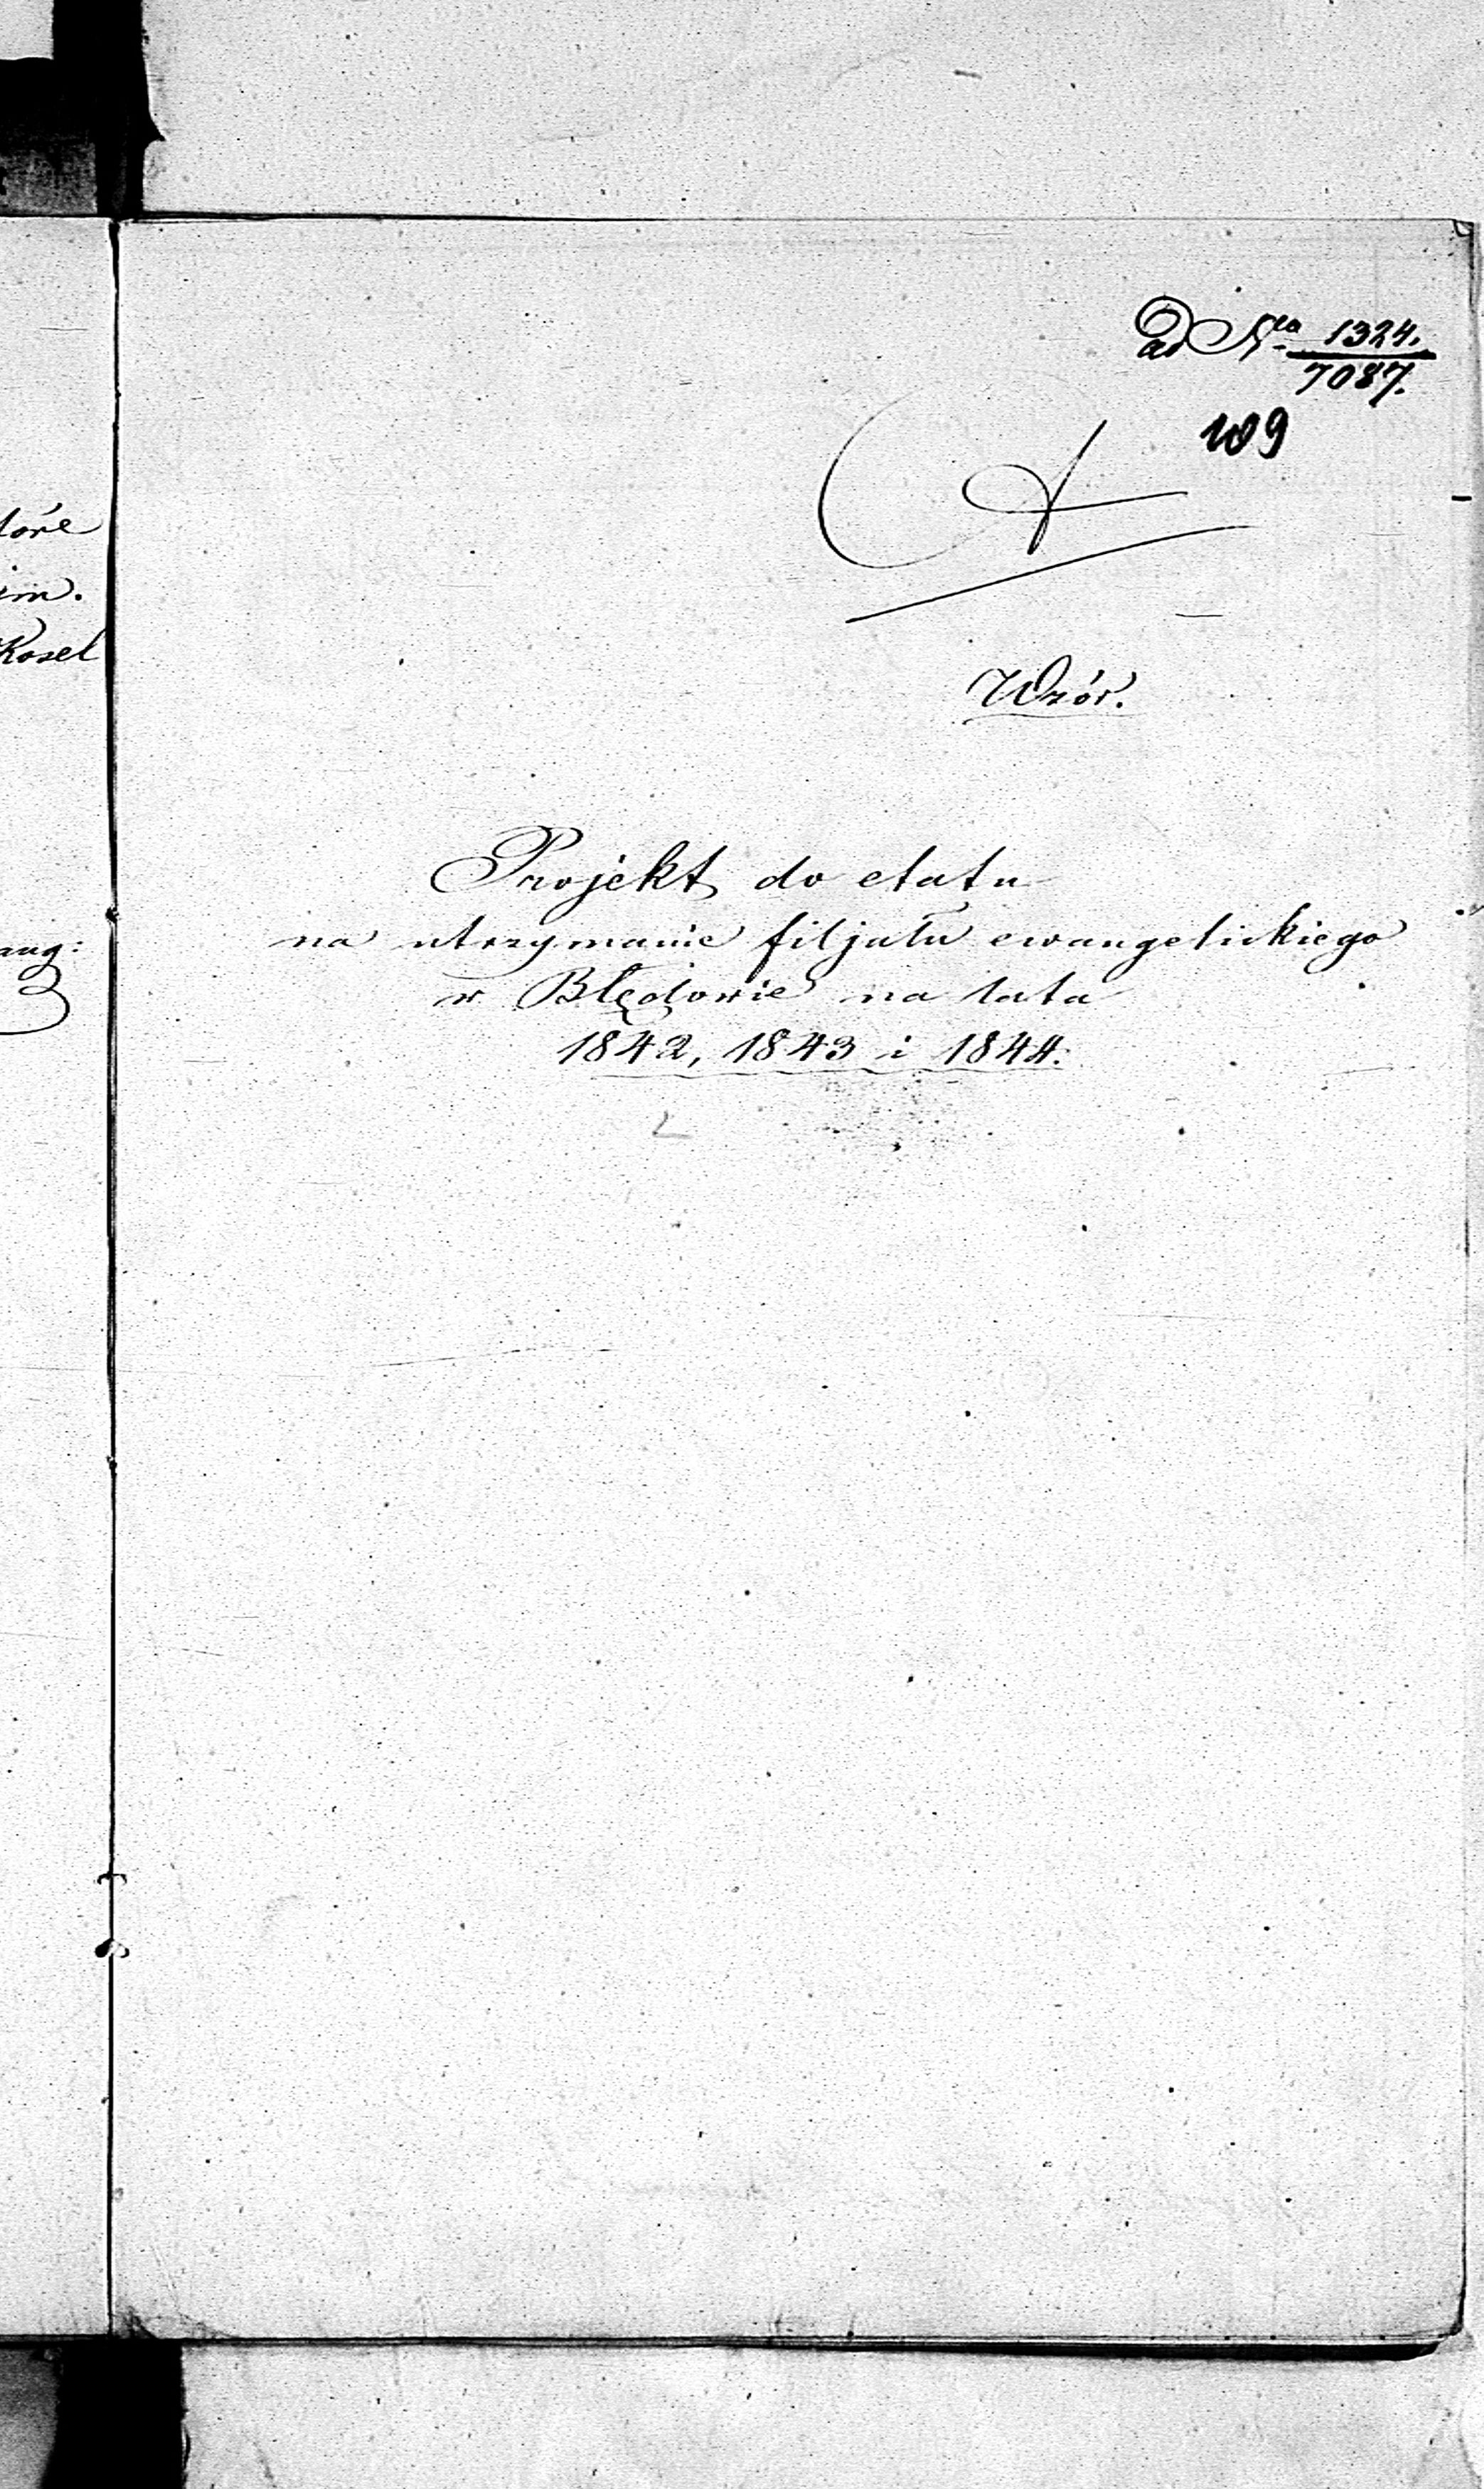 tóre
im.
Kosel
aug:
ad Nra 1324.
7087.
109
A
Wzór.
Projekt do etatu
na utrzymanie filjału ewangelickiego
w Błędowie na lata
1842, 1843 i 1844.